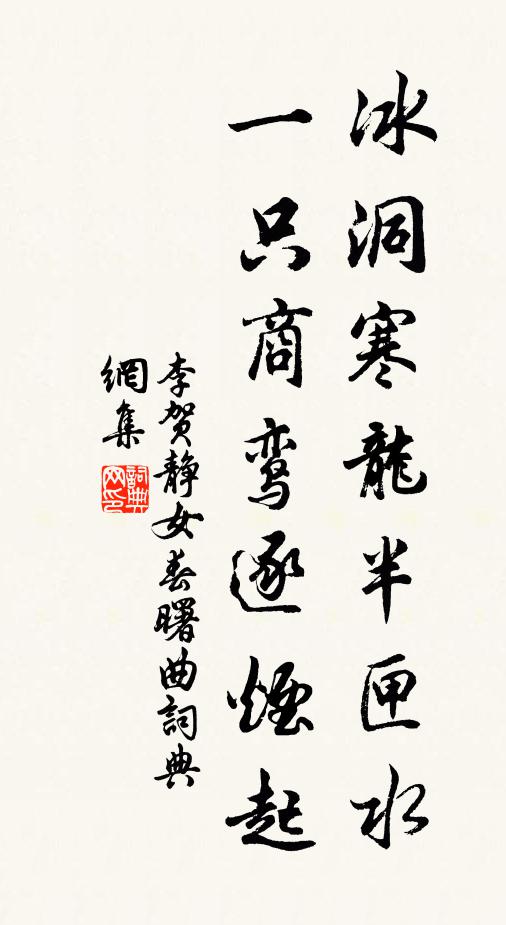 冰洞寒龍半匣水
一只商鸾逐煙起
李贺靜女春曙曲詞典
網集
詞典网印